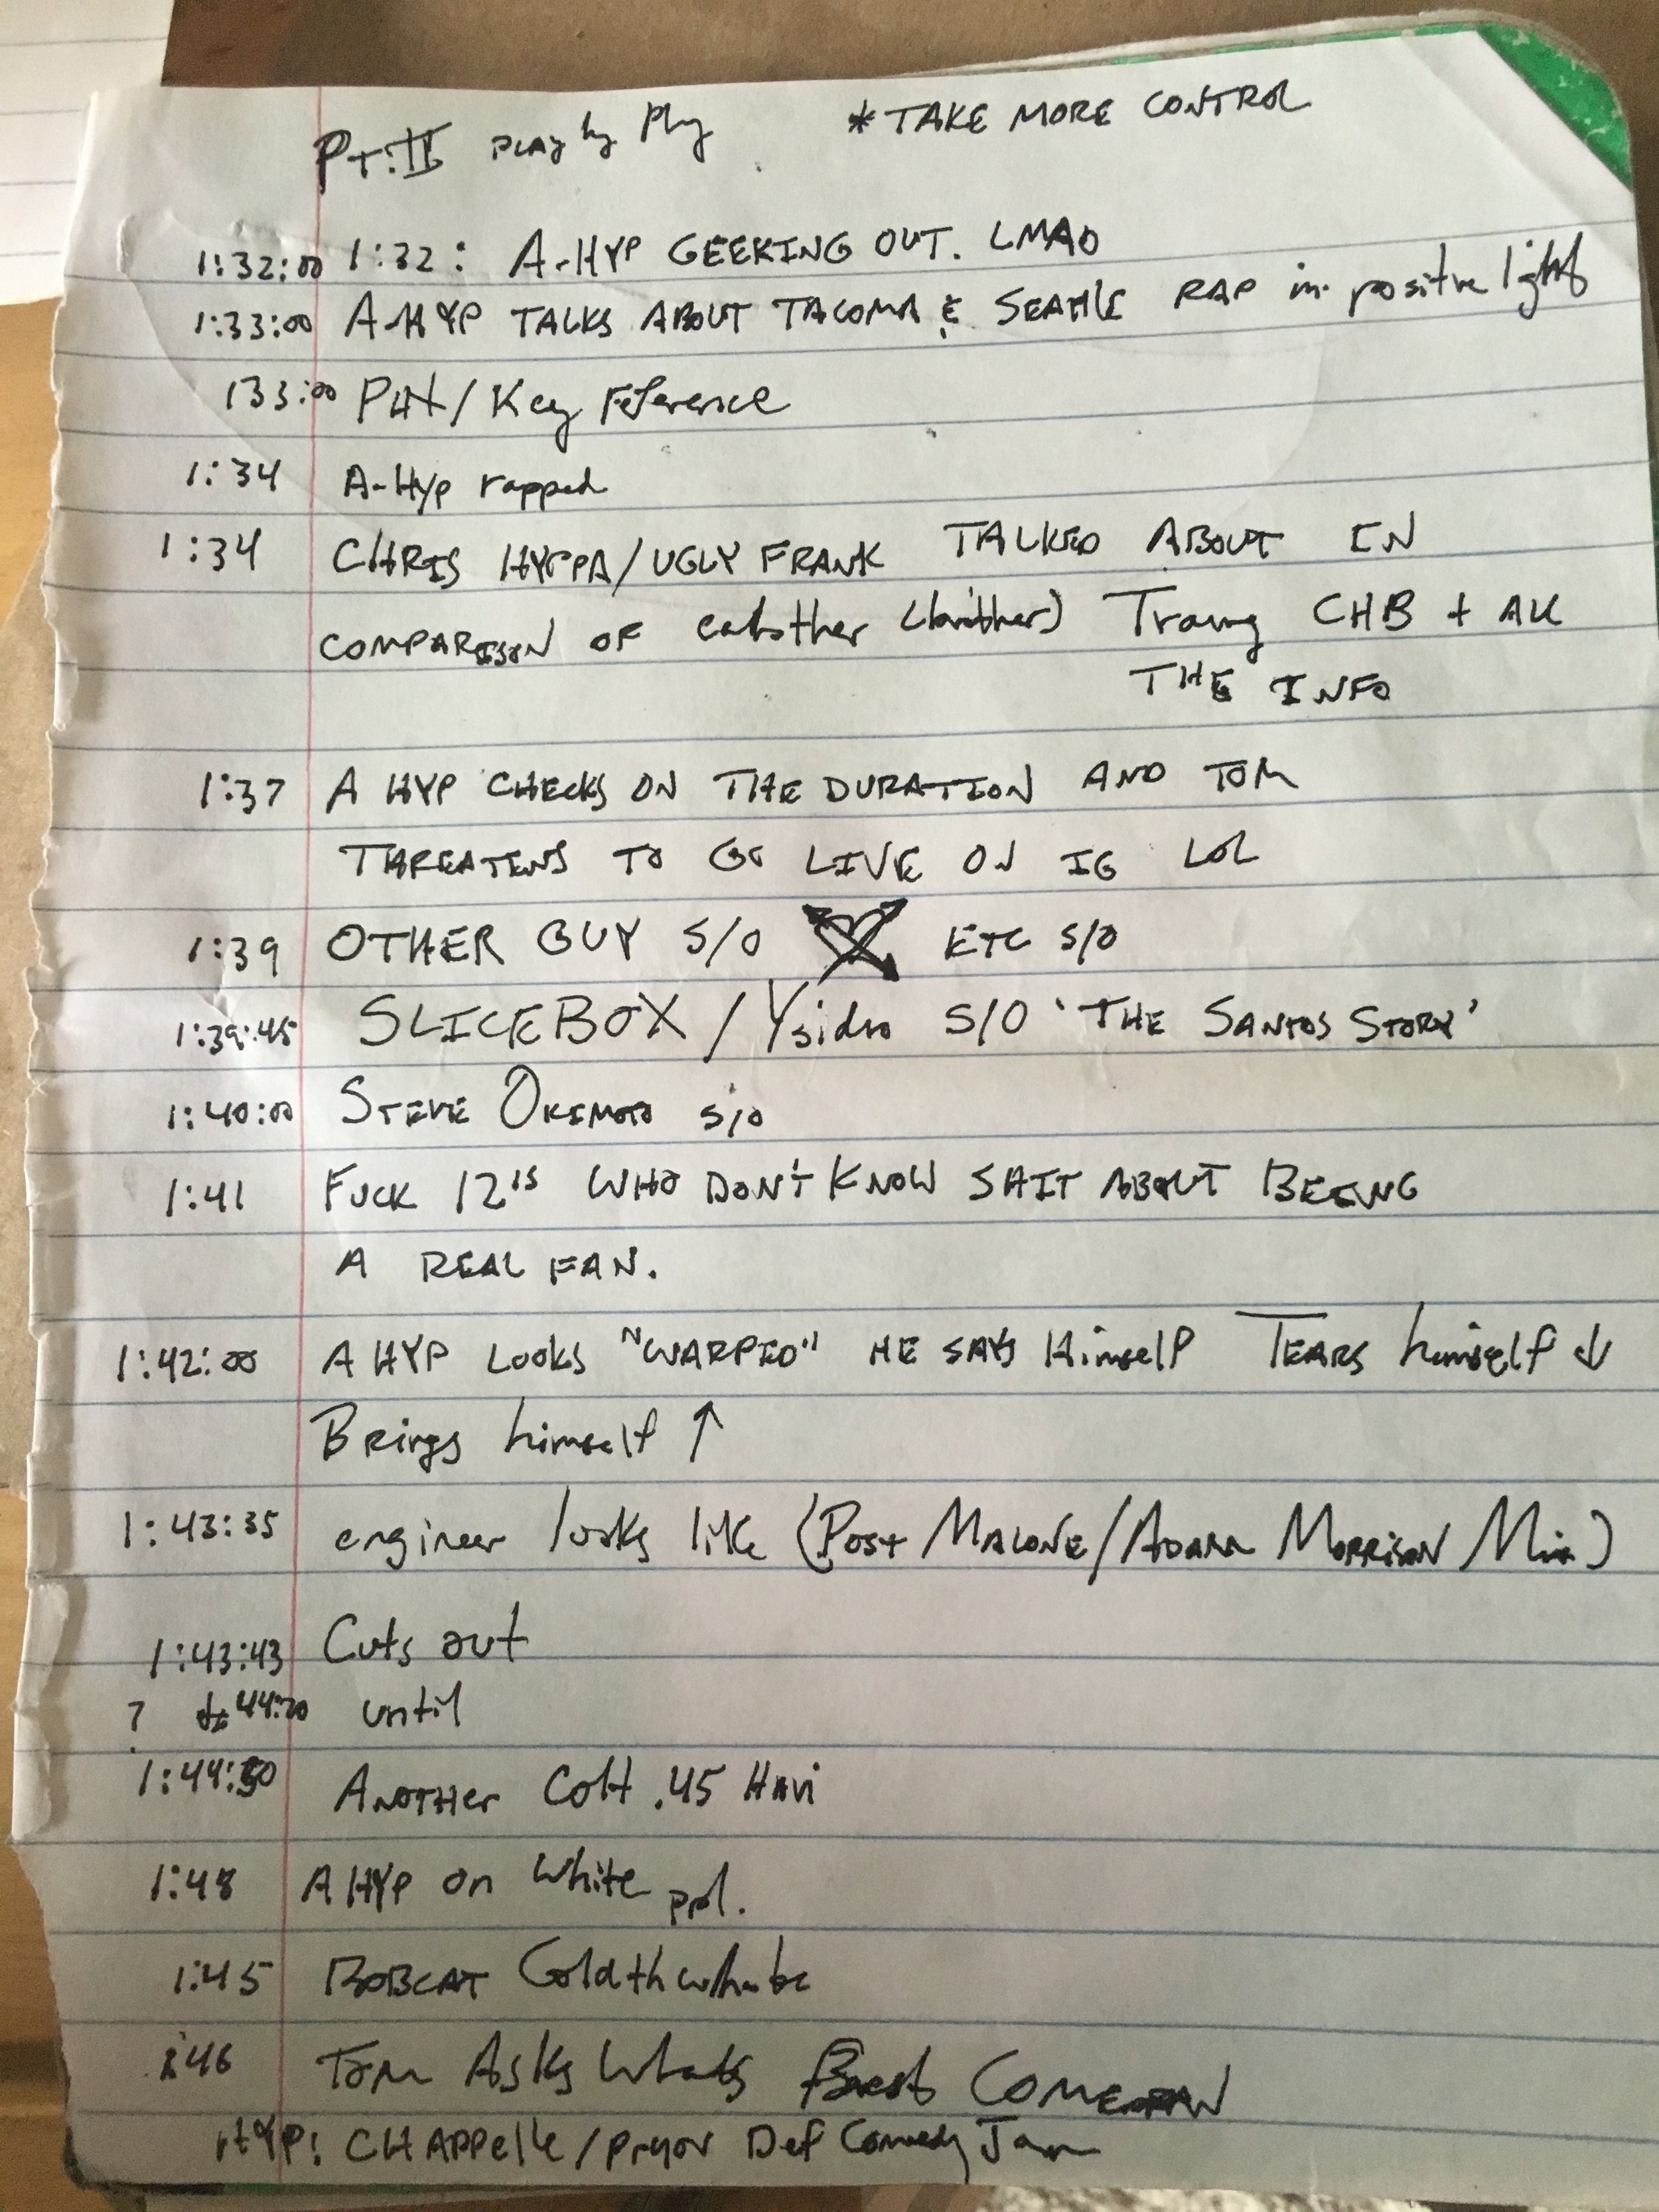 PT.II PLAY by Play *TAKE MORE CONTROL
1:32:00 1:32: A-HYP GEEKING OUT. LMAO
1:33:00 A-HYP TALKS ABOUT TACOMA & SEATTLE RAP in positive light
133:00 / Key reference
1:34 A-Hyp rapped
1:34 CHRIS / UGLY FRANK TALKED ABOUT IN
COMPARISON OF (brother) CHB + ALL
THE INFO
1:37 A HYP CHECKS ON THE DURATION AND TOM
THREATENS TO GO LIVE ON IG LOL
1:39 OTHER GUY S/O ETC S/O
1:39:45 SLICEBOX / Ysidro S/O 'THE SANTOS STORY'
1:40:00 STEVE OKIMOTO S/O
1:41 FUCK 12's WHO DON'T KNOW SHIT ABOUT BEING
A REAL FAN.
1:42:00 A HYP LOOKS "WARPED" HE SAYS Himself TEARS himself ↓
Brings himself ↑
1:43:35 engineer looks like (POST MALONE/ADAM MORRISON Mix)
1:43:43 Cuts out
? to 44:20 until
1:44:50 ANOTHER Colt .45
1:48 A HYP on White ppl.
1:45 BOBCAT
:46 Tom Asks Whats Best COMEDIAN
HYP: CHAPPelle/pryor Def Comedy Jam